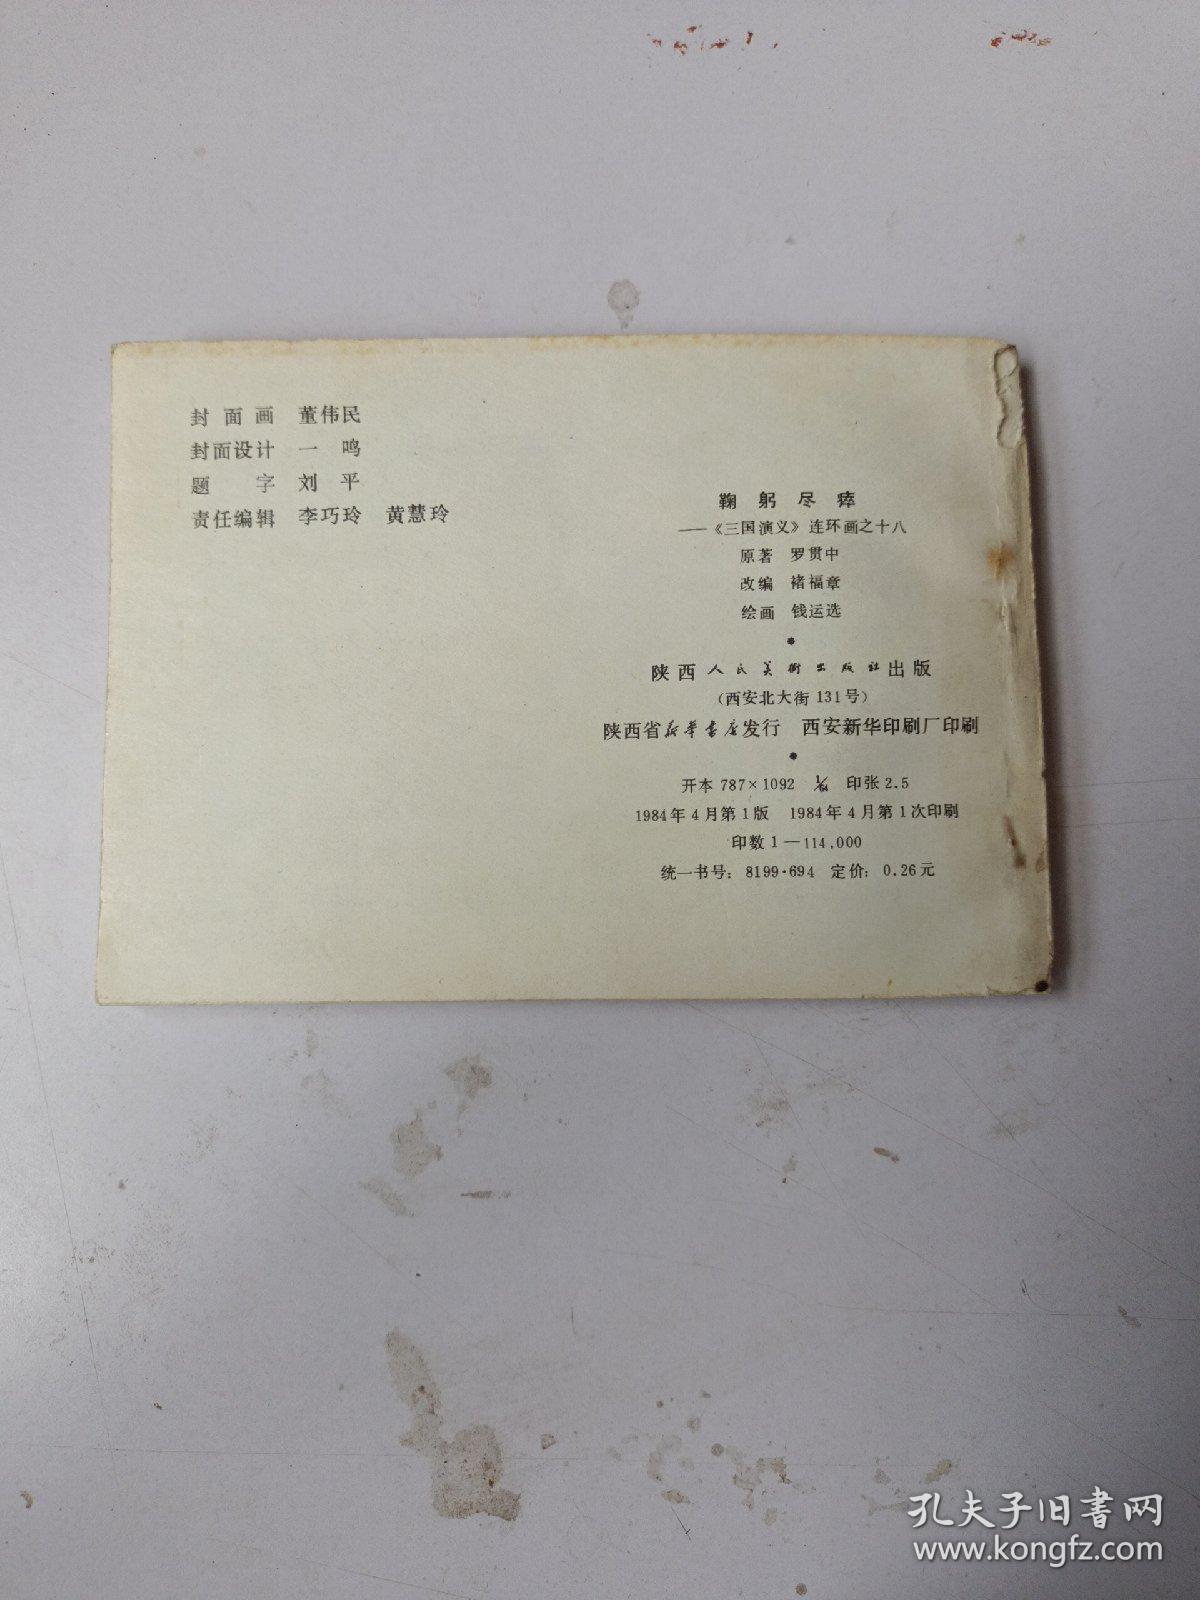 封面画 董伟民
封面设计 一鸣
题字 刘平
责任编辑 李巧玲 黄慧玲
鞠躬尽瘁
——《三国演义》连环画之十八
原著 罗贯中
改编 褚福章
绘画 钱运选
陕西人民美术出版社出版
(西安北大街131号)
陕西省新华书店发行 西安新华印刷厂印刷
开本 787×1092 印张 2.5
1984年4月第1版 1984年4月第1次印刷
印数1—114,000
统一书号：8199·694 定价：0.26元
孔夫子旧书网
www.kongfz.com